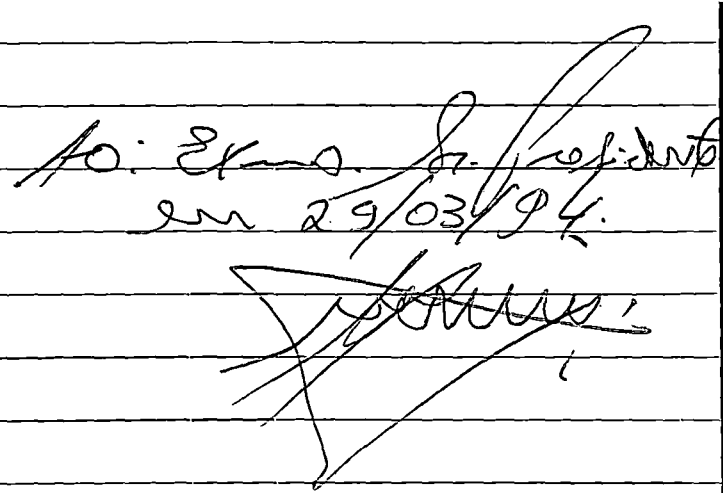 Ao: Exmo. Sr. Presidente
em 29/03/94.